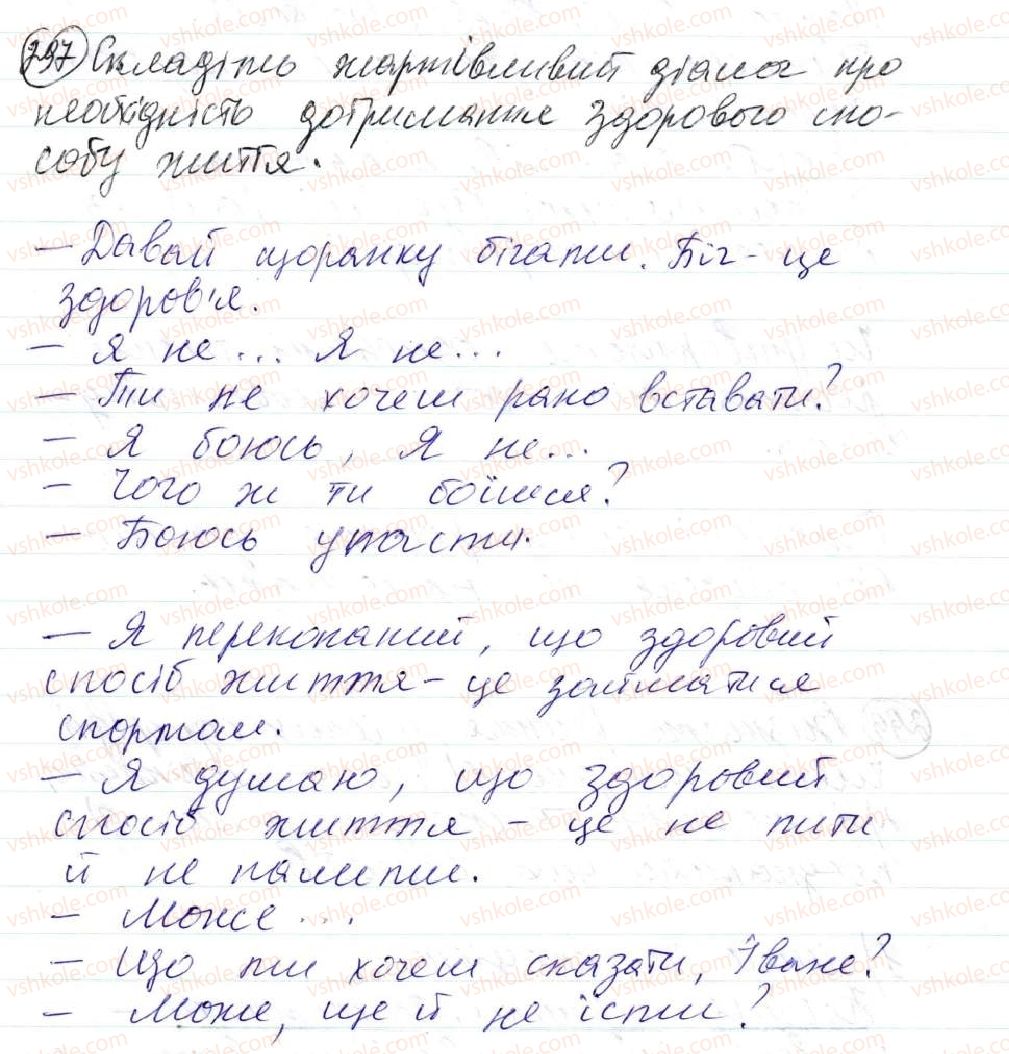 297 Складіть жартівливий діалог про
необхідність дотримання здорового спо-
собу життя.
— Давай щоранку бігати. Біг - це
здоров'я.
— Я не ... Я не ...
— Ти не хочеш рано вставати?
— Я боюсь, Я не ...
— Чого ж ти боїшся?
— Боюсь упасти.
— Я переконаний, що здоровий
спосіб життя - це займатися
спортом.
— Я думаю, що здоровий
спосіб життя - це не пити
й не палити.
— Може ...
— Що ти хочеш сказати, Іване?
— Може, ще й не їсти?